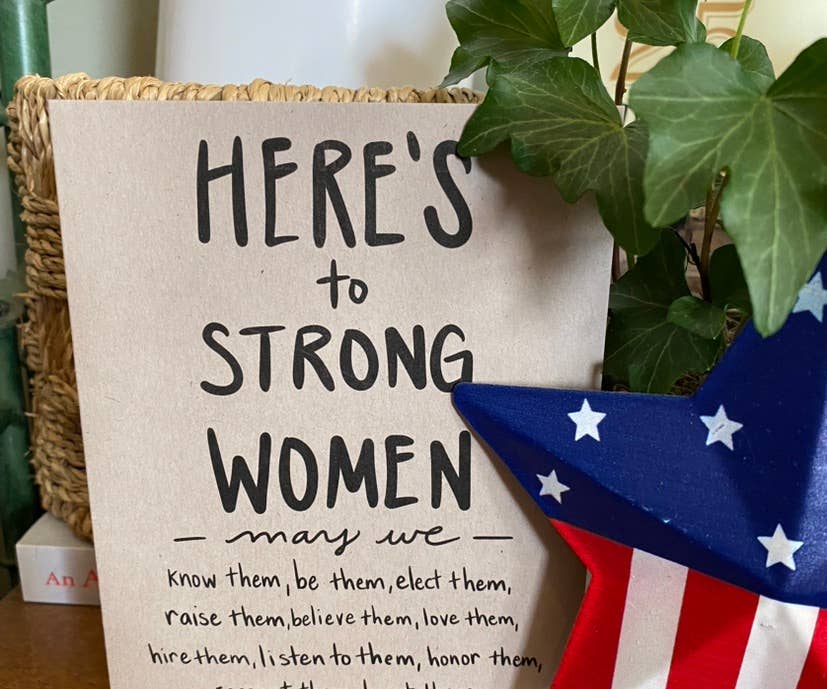 HERE'S
to
STRONG
WOMEN
— may we —
know them, be them, elect them,
raise them, believe them, love them,
hire them, listen to them, honor them,
An